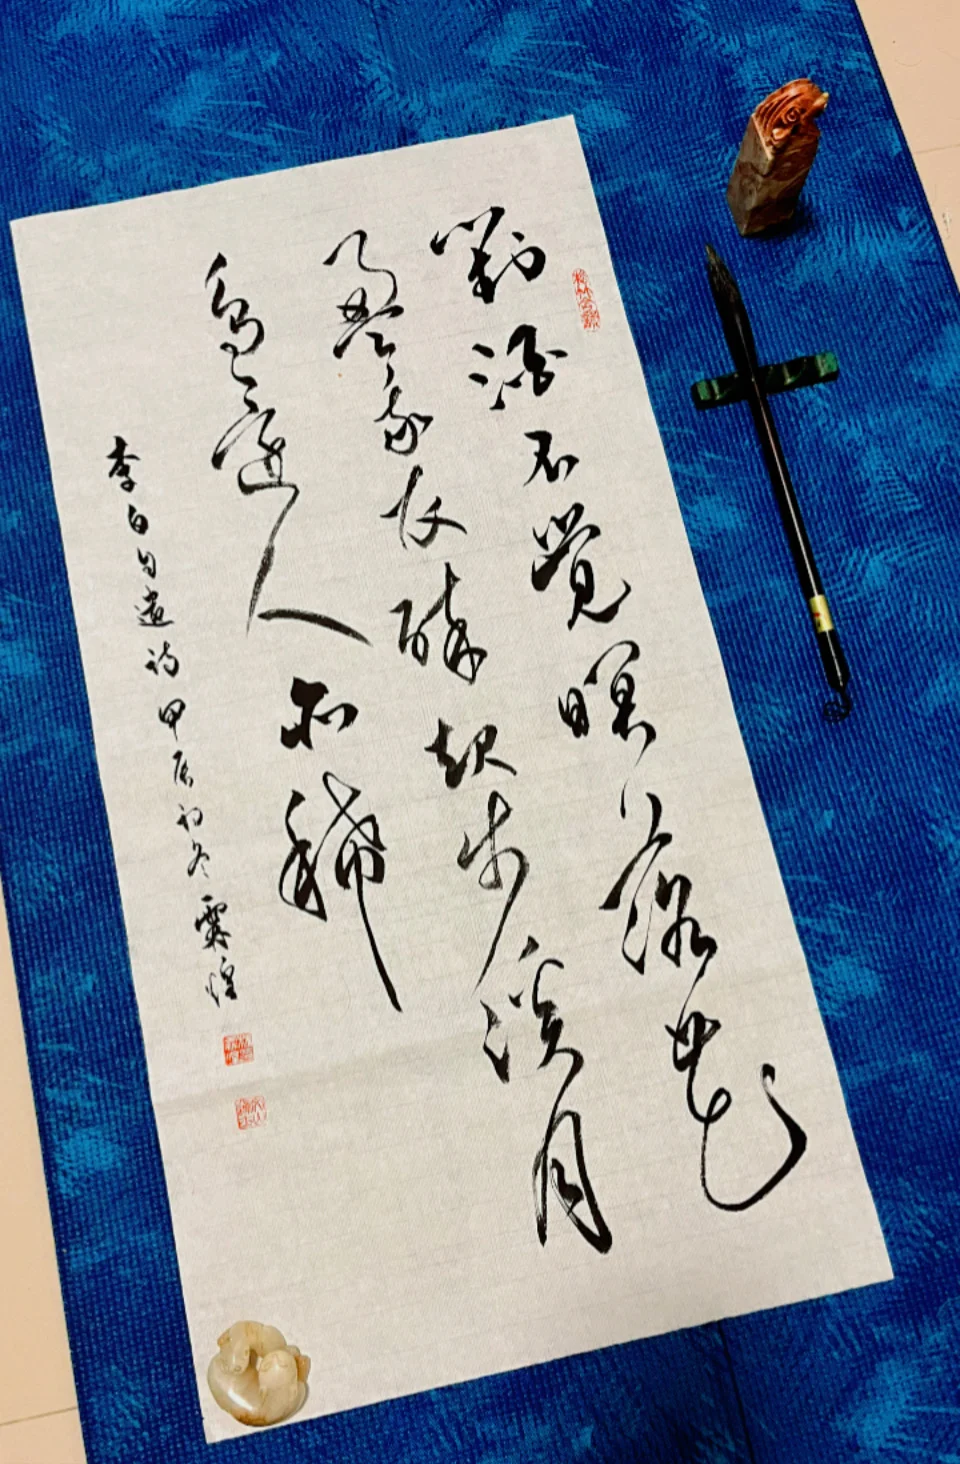 對酒不覺暝落花
盈我衣醉起步溪月
鳥還人亦稀
李白自遣詩甲辰初冬霖煌